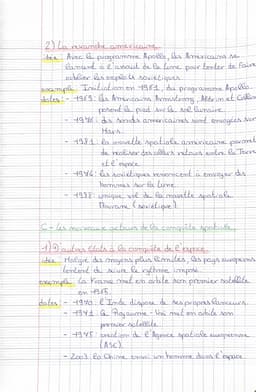 2) La revanche américaine
idée : Avec le programme Apollo, les Américains se
lancent à l'assaut de la Lune pour tenter de faire
oublier les exploits soviétiques.
exemple : Initiation en 1961, du programme Apollo.
dates : - 1969 : les Américains Armstrong, Aldrin et Collins
posent le pied sur le sol lunaire.
- 1976 : des sondes américaines sont envoyées sur
Mars.
- 1981 : la navette spatiale américaine permet
de réaliser des allers retours entre la Terre
et l'espace.
- 1976 : les soviétiques renoncent à envoyer des
hommes sur la Lune.
- 1988 : unique vol de la navette spatiale
Bourane (soviétique).
C - Les nouveaux acteurs de la conquête spatiale
1) D'autres états à la conquête de l'espace
idée : Malgré des moyens plus limités, les pays européens
tentent de suivre le rythme imposé.
exemple : La France met en orbite son premier satellite
en 1965.
dates : - 1970 : l'Inde dispose de ses propres lanceurs.
- 1971 : le Royaume-Uni met en orbite son
premier satellite.
- 1975 : création de l'Agence spatiale européenne
(ASE).
- 2003 : la Chine envoi un homme dans l'espace